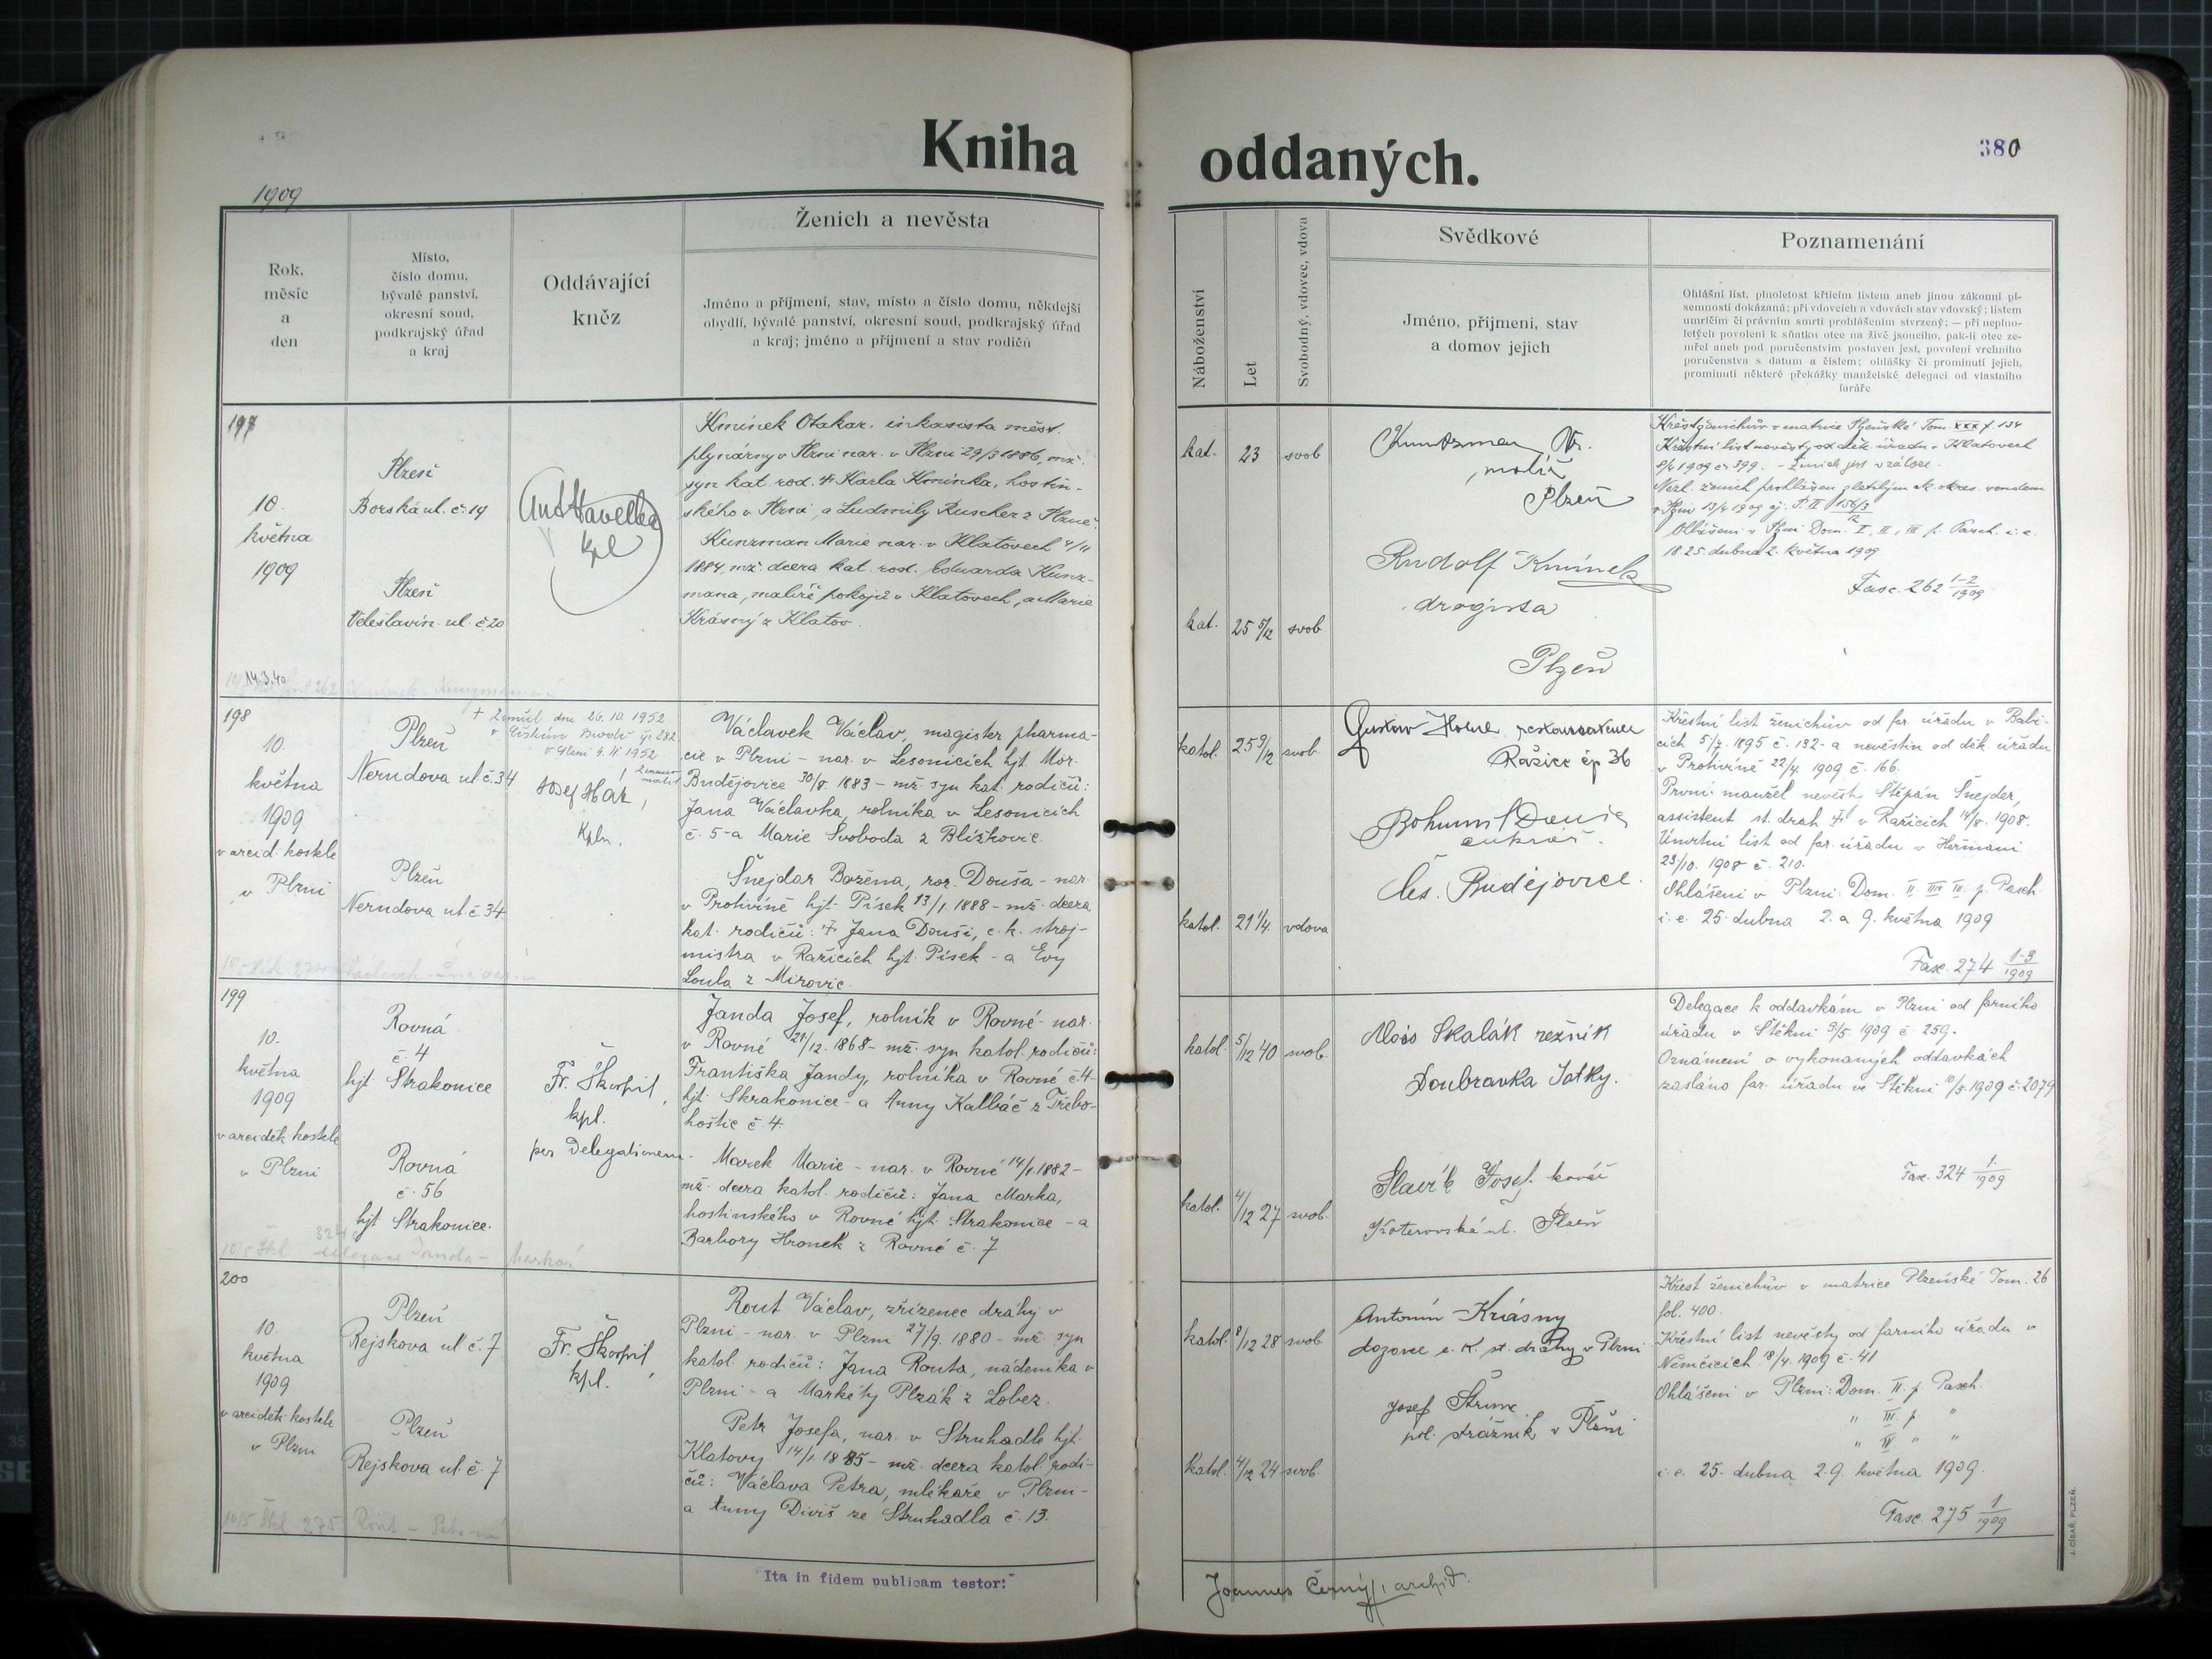 Kniha oddaných.
380
1909
Rok, měsíc a den
Místo, číslo domu, bývalé panství, okresní soud, podkrajský úřad a kraj
Oddávající kněz
Ženich a nevěsta
Jméno a příjmení, stav, místo a číslo domu, někdejší
obydlí, bývalé panství, okresní soud, podkrajský úřad
a kraj; jméno a příjmení a stav rodičů
Náboženství
Let
Svobodný, vdovec, vdova
Svědkové
Jméno, příjmení, stav
a domov jejich
Poznamenání
Ohlášní list, plnoletost křticím listem aneb jinou zákonní pí-
semností dokázaná; při vdovcích a vdovách stav vdovský; listem
umrlčím či právním smrti prohlášením stvrzený; — při neplno-
letých povolení k sňatku otce na živě jsoucího, pak-li otec ze-
mřel aneb pod poručenstvím postaven jest, povolení vrchního
poručenstva s datum a číslem; ohlášky či prominutí jejich,
prominutí některé překážky manželské delegací od vlastního
faráře
197
10.
května
1909
Plzeň
Borská ul. č. 14
Plzeň
Veleslavín. ul. č. 20
Ant Havelka
kpl
Kmínek Otakar, inkasista měst.
plynárny v Plzni nar. v Plzni 29/3 1886, mž.
syn kat. rod. † Karla Kmínka, hostin-
ského v Plzni, a Ludmily Ruscher z Plzně.
Kunzman Marie nar. v Klatovech 4/11
1884, mž. dcera kat. rod. Eduarda Kunz-
mana, malíře pokojů v Klatovech, a Marie
Krásný z Klatov.
14.3.40
kat. 23 svob
kat. 25 5/12 svob
malíř
Plzeň
Rudolf Kmínek
drogista
Plzeň
Křest ženichův v matrice Plzeňské Tom. XXX f. 134
Křestní list nevěsty od děk. úřadu v Klatovech
1909 čs 399.
18. 25. dubna 2. května 1909
Fasc. 262 1-2/1909
198
10.
května
1909
v arcid. kostele
v Plzni
Plzeň
Nerudova ul č. 34
Plzeň
Nerudova ul. č. 34
† Zemřel dne 26. 10. 1952
v Plzni 4. 11 1952
Josef Hak,
Kpln.
Václavek Václav, magister pharma-
cie v Plzni - nar. v Lesonicích hjt. Mor.
Budějovice 30/8 1883 - mž. syn kat. rodičů:
Jana Václavka, rolníka v Lesonicích
č. 5 - a Marie Svoboda z Blížkovic.
Šnejdar Božena, roz. Douša - nar.
v Protivíně hjt. Písek 13/1 1888 - mž. dcera
kat. rodičů: † Jana Douši, c. k. stroj-
mistra v Ražicích hjt. Písek - a Evy
Loula z Mirovic.
katol. 25 9/12 svob.
katol. 21 1/4. vdova
Ražice čp 36
cukrář.
Čes. Budějovice.
Křestní list ženichův od far. úřadu v Babi-
cích 5/7. 1895 č. 132 - a nevěstin od děk. úřadu
v Protivíně 22/4. 1909 č. 166.
První manžel nevěsty Štěpán Šnejder,
assistent st. drah † v Ražicích 14/8. 1908.
Úmrtní list od far. úřadu v Heřmani
23/10. 1908 č. 210.
Ohlášeni v Plzni: Dom. II. III IV. p. Pasch.
i. e. 25. dubna 2. a 9. května 1909
Fasc. 274 1-3/1909
199
10.
května
1909
v arciděk. kostele
v Plzni
Rovná
č. 4
hjt. Strakonice
Rovná
č. 56
hjt Strakonice.
Fr. Škorpil,
kpl.
per Delegationem.
Janda Josef, rolník v Rovné - nar.
v Rovné 21/12. 1868 - mž. syn katol. rodičů:
Františka Jandy, rolníka v Rovné č. 4
hjt. Skrakonice - a Anny Kalbáč z Třebo-
hostic č 4.
Marek Marie - nar. v Rovné 14/1 1882 -
mž. dcera katol. rodičů: Jana Marka,
hostinského v Rovné hjt. Strakonice - a
Barbory Hronek z Rovné č. 7
katol. 5/12 40 svob.
katol. 4/12 27 svob.
Alois Skalák řezník
Doubravka Jatky.
Slavík Josef. kovář
Koterovská ul. Plzeň
Delegace k oddavkám v Plzni od farního
úřadu v Štěkni 9/5. 1909 č. 259.
Oznámení o vykonaných oddavkách
zasláno far. úřadu ve Štěkni 10/5. 1909 č. 2079
Fasc. 324 1./1909
324
200
10.
května
1909
v arciděk. kostele
v Plzni
Plzeň
Rejskova ul č. 7
Plzeň
Rejskova ul. č. 7
Fr. Škorpil,
kpl.
Rout Václav, zřízenec dráhy v
Plzni - nar. v Plzni 27/9. 1880 - mž. syn
katol. rodičů: Jana Routa, nádeníka v
Plzni - a Markéty Plzák z Lobez.
Petr Josefa, nar. v Struhadle hjt.
Klatovy 14/1. 1885 - mž. dcera katol. rodi-
čů: Václava Petra, mlékaře v Plzni -
a Anny Diviš ze Struhadla č. 13.
katol. 8/12 28 svob
katol. 4/12 24 svob.
Antonín Krásny
dozorce c. k. st. dráhy v Plzni
Josef
pol. strážník v Plzni
Křest ženichův v matrice Plzeňské Tom. 26
fol. 400.
Křestní list nevěsty od farního úřadu v
Němčicích 18/4. 1909 č. 41
Ohlášeni v Plzni: Dom. II. p. Pasch.
" III. p. "
" IV " "
i. e. 25. dubna 2. 9. května 1909.
Fasc. 275 1/1909
"Ita in fidem publicam testor:"
Joannes Černý, archid.
J. CÍSAŘ, PLZEŇ.